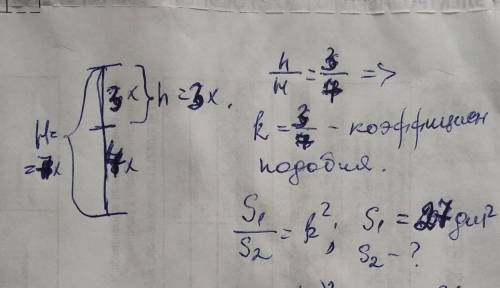 H=
=7x
3x
4x
h=3x.
h/H = 3/7 =>
k = 3/7 - коэффициен
подобия.
S₁/S₂ = k²; S₁ = 27 дм²
S₂ - ?